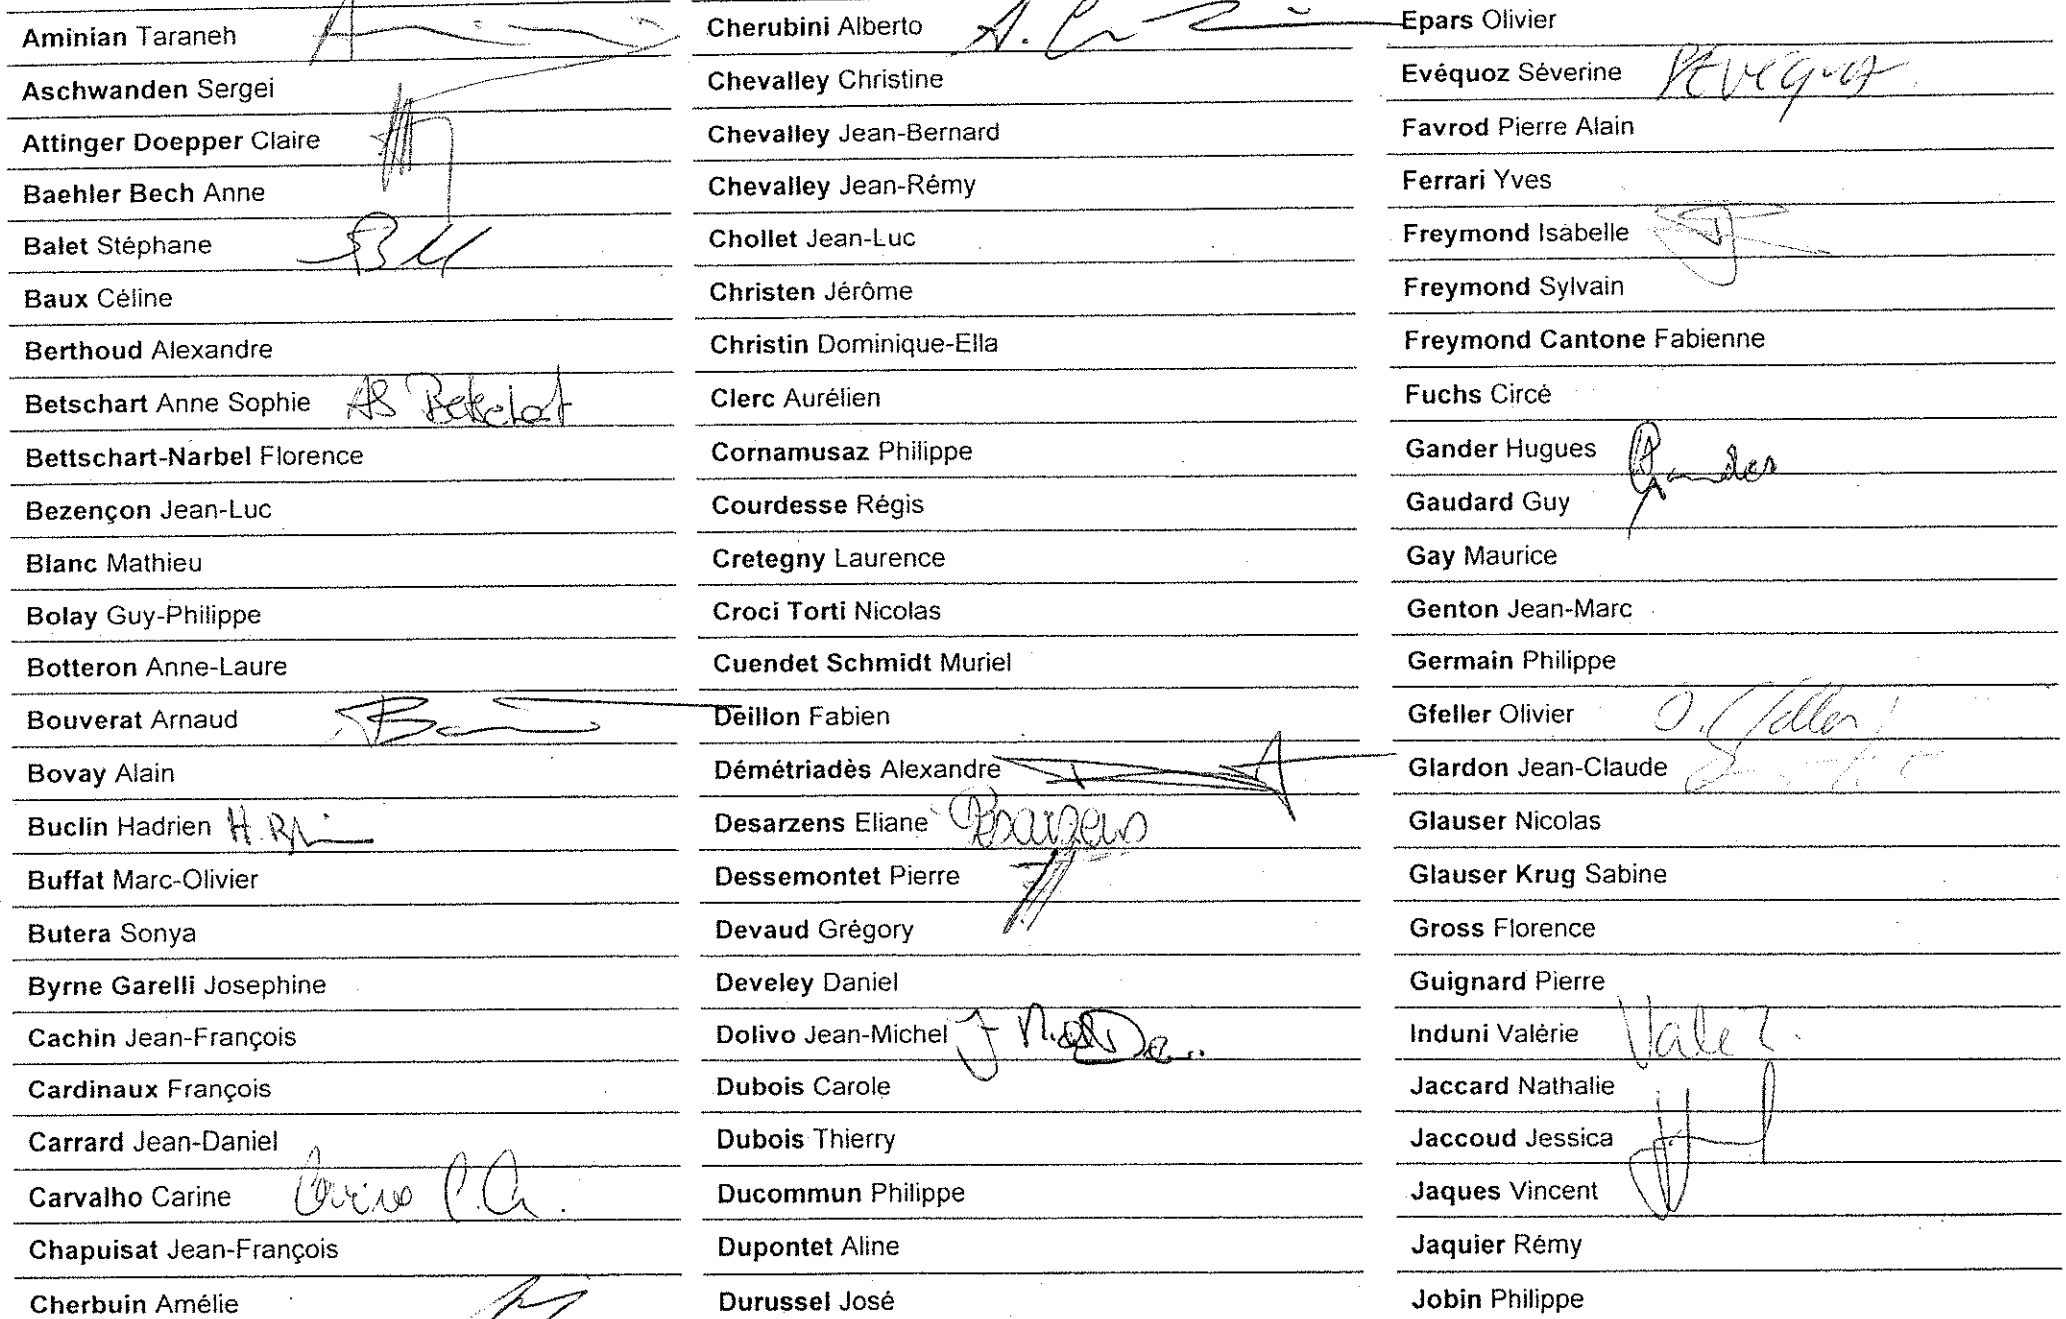 Aminian Taraneh
Aschwanden Sergei
Attinger Doepper Claire
Baehler Bech Anne
Balet Stéphane
Baux Céline
Berthoud Alexandre
Betschart Anne Sophie AS Betschart
Bettschart-Narbel Florence
Bezençon Jean-Luc
Blanc Mathieu
Bolay Guy-Philippe
Botteron Anne-Laure
Bouverat Arnaud
Bovay Alain
Buclin Hadrien
Buffat Marc-Olivier
Butera Sonya
Byrne Garelli Josephine
Cachin Jean-François
Cardinaux François
Carrard Jean-Daniel
Carvalho Carine
Chapuisat Jean-François
Cherbuin Amélie
Cherubini Alberto
Chevalley Christine
Chevalley Jean-Bernard
Chevalley Jean-Rémy
Chollet Jean-Luc
Christen Jérôme
Christin Dominique-Ella
Clerc Aurélien
Cornamusaz Philippe
Courdesse Régis
Cretegny Laurence
Croci Torti Nicolas
Cuendet Schmidt Muriel
Deillon Fabien
Démétriadès Alexandre
Desarzens Eliane Desarzens
Dessemontet Pierre
Devaud Grégory
Develey Daniel
Dolivo Jean-Michel
Dubois Carole
Dubois Thierry
Ducommun Philippe
Dupontet Aline
Durussel José
Epars Olivier
Evéquoz Séverine
Favrod Pierre Alain
Ferrari Yves
Freymond Isabelle
Freymond Sylvain
Freymond Cantone Fabienne
Fuchs Circé
Gander Hugues Gander
Gaudard Guy
Gay Maurice
Genton Jean-Marc
Germain Philippe
Gfeller Olivier O. Gfeller
Glardon Jean-Claude
Glauser Nicolas
Glauser Krug Sabine
Gross Florence
Guignard Pierre
Induni Valérie
Jaccard Nathalie
Jaccoud Jessica
Jaques Vincent
Jaquier Rémy
Jobin Philippe